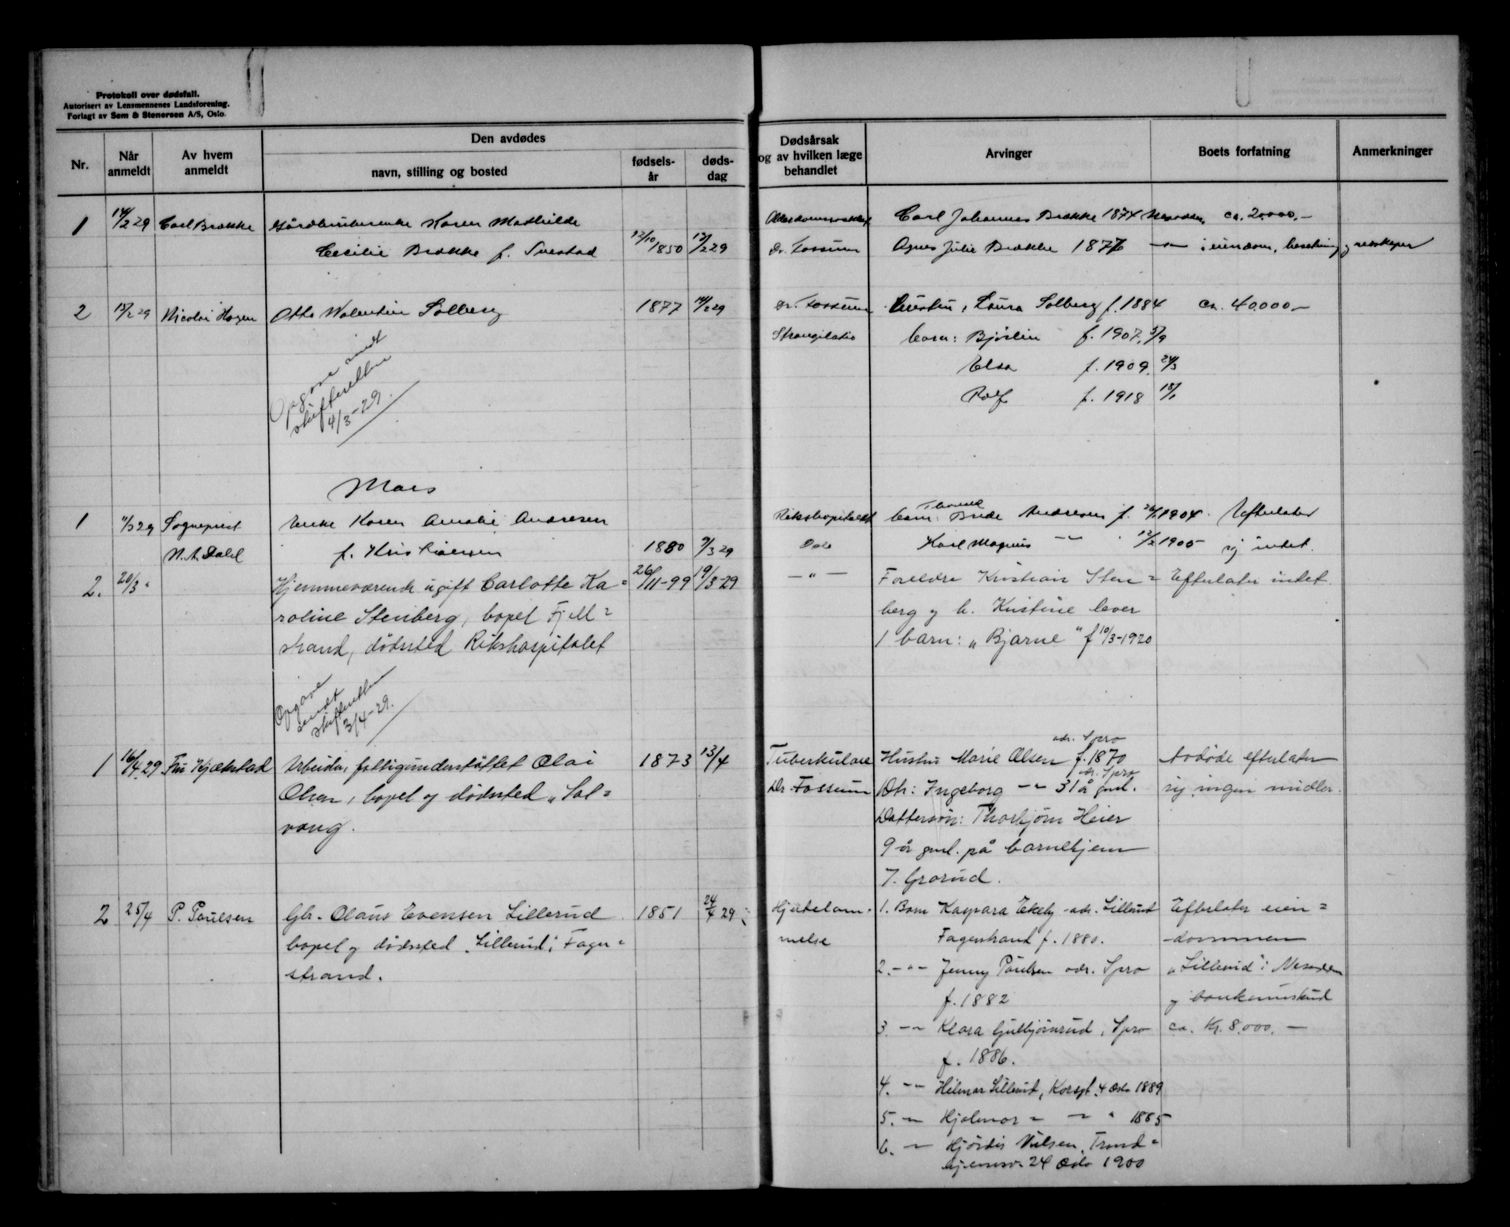 Protokoll over dødsfall.
Autorisert av Lensmennenes Landsforening.
Forlagt av Sem & Stenersen A/S, Oslo.
Nr.
Når anmeldt
Av hvem anmeldt
Den avdødes
navn, stilling og bosted
fødsels-år
døds-dag
Dødsårsak og av hvilken læge behandlet
Arvinger
Boets forfatning
Anmerkninger
1 14/2 29 Carl Brække Karen Mathilde Carl Johannes Brække 1874 Nesodden ca. 20000.-
Cecilie Brække f. 12/10 1850 12/2 29 Dr. Fossum Agnes Julie Brække 1877 -"- i eiendom, besetning og redskaper
2 15/2 29 Nicolai Hagen Otto Valentin Solberg 1877 14/2 29 Dr. Fossum Hustru, Laura Solberg f. 1884 ca. 40.000.-
Strangulatio barn: f. 1907. 5/9
Elsa f. 1909. 24/3
Rolf f. 1918 18/1
Opgave sendt
skifteretten
4/3-29.
Mars
1 29 Sogneprest Enke Karen Amalie Andresen Rikshospitalet barn: Andresen f. 1904. Efterlater
N. A. Dahl f. Kristiansen 1880 9/3 29 Oslo Karl Magnus -"- 12/2 1905 ej intet.
2. 20/3 " Hjemmeværende ugift Carlotte Ka= 26/11-99 19/3-29 -"- Foreldre Kristian Sten= Efterlater intet.
roline Stenberg, bopel Fjell= berg og h. Kristine lever
strand, dødssted Rikshospitalet 1 barn: "Bjarne" f 10/3-1920
Opgave
sendt
skifteretten
3/4-29.
adr. Spro
1 16/4.29 Fru Kjækstad Arbeider, fattigunderstøttet Olai 1873 13/4 Tuberkulose Hustru Marie Olsen f. 1870 Avdøde efterlater
adr. Spro
Olsen, bopel og dødssted "Sol= Dr. Fossum Dtr: Ingeborg -"- 31 år gml. sig ingen midler.
vang. Dattersøn: Thorbjørn Heier
9 år gml. på barnehjem
i Grorud.
2 25/4 P. Paulsen Gbr. Olaus Evensen Lillerud 1851 24/4 29 Hjertelam- 1. Barn Kaspara Ekeby adr. Lillerud Efterlater eien=
bopel og dødssted "Lillerud", Fager= melse Fagerstrand f. 1880. dommen
strand. 2. -"- Jenny Paulsen adr. Spro "Lillerud" i Nesodden
f. 1882 og bankinnskud
3 -"- Klara Gulbjørnrud, Spro ca. Kr. 8.000.-
f. 1886.
4. -"- Hilmar Lillerud, Korsgt. 4 Oslo 1889
5. -"- Hjalmar -"- -"- " 1885
6. -"- Hjørdis Nilsen, Trond=
hjemsv. 24 Oslo 1900